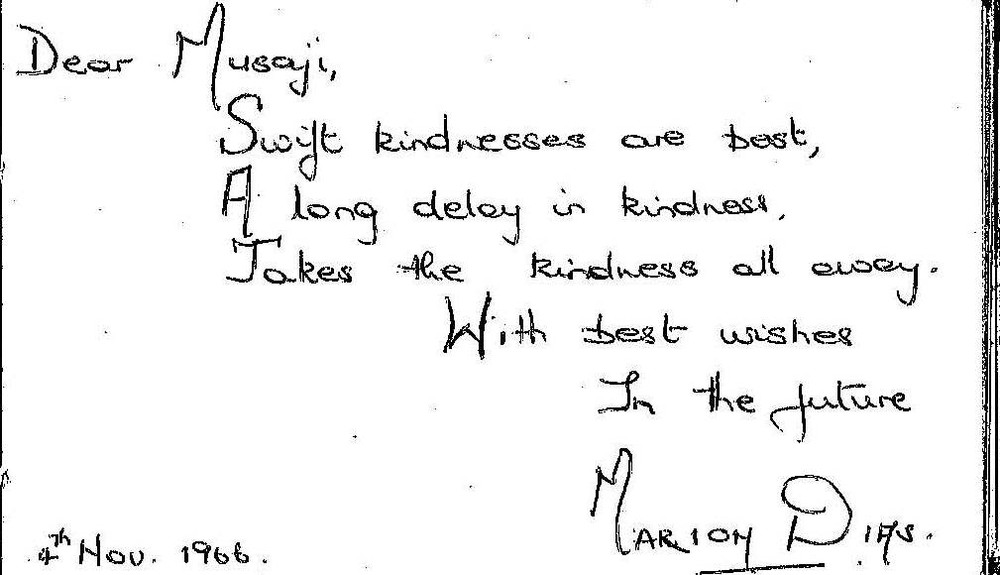 Dear Musaji,
Swift kindnesses are best,
A long delay in kindness,
Takes the kindness all away.
With best wishes
In the future
MARION DIAS.
4th Nov. 1966.